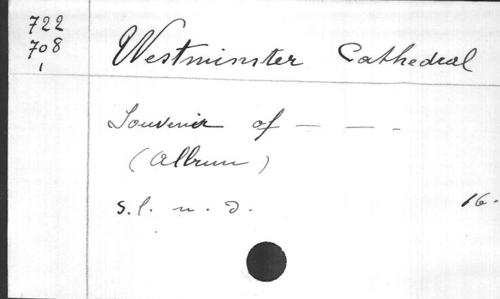 722
708
1
Westminster Cathedral
Souvenir of — — -
(Album)
S.l. n. d.
16-